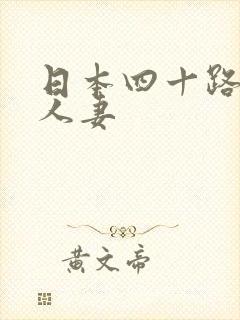 日本四十路
人妻
黄文帝